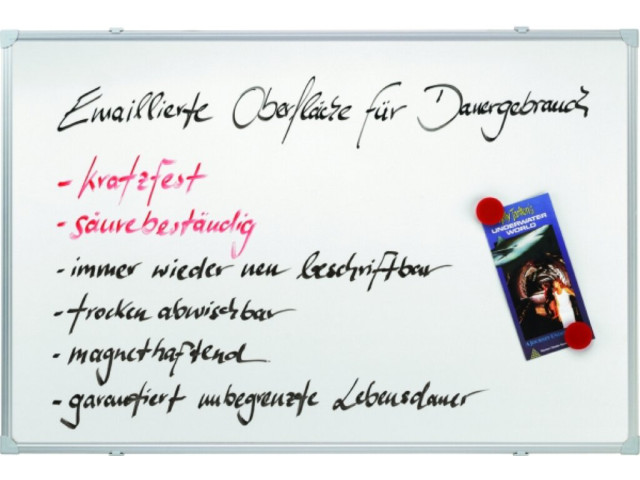 Emaillierte Oberfläche für Dauergebrauch
- kratzfest
- säurebeständig
- immer wieder neu beschriftbar
- trocken abwischbar
- magnethaftend
- garantiert unbegrenzte Lebensdauer
UNDERWATER
WORLD